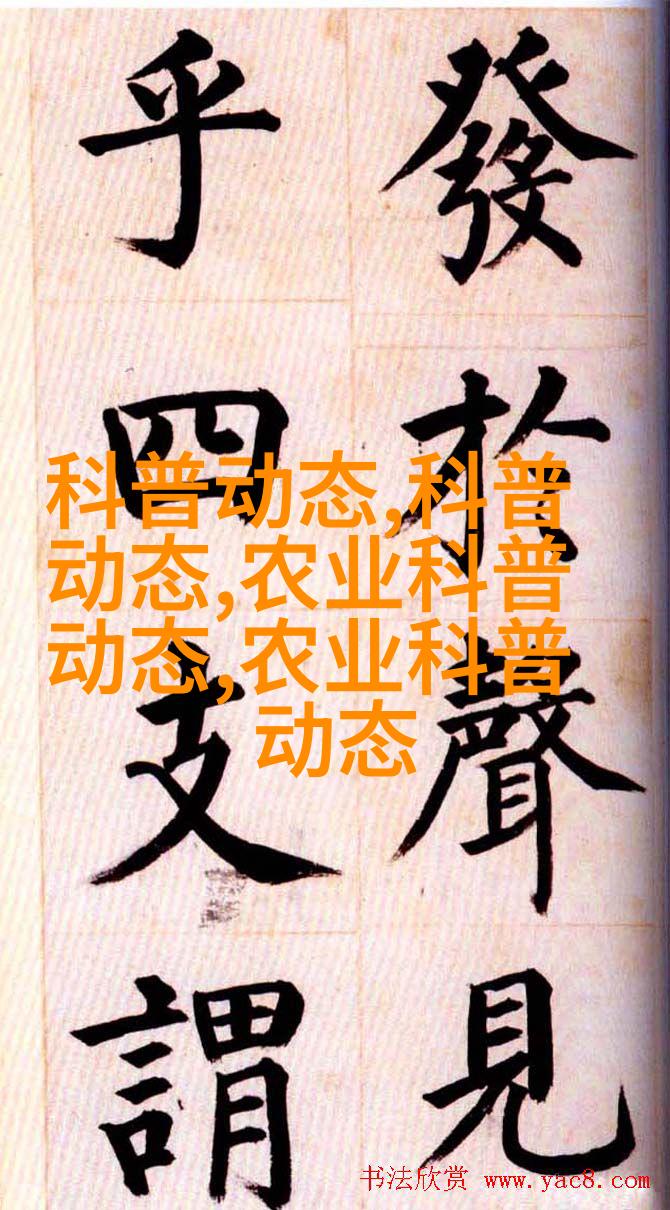 發於聲見
乎四支謂
科普动态,科普
动态,农业科普
动态,农业科普
动态
书法欣赏 www.yac8.com